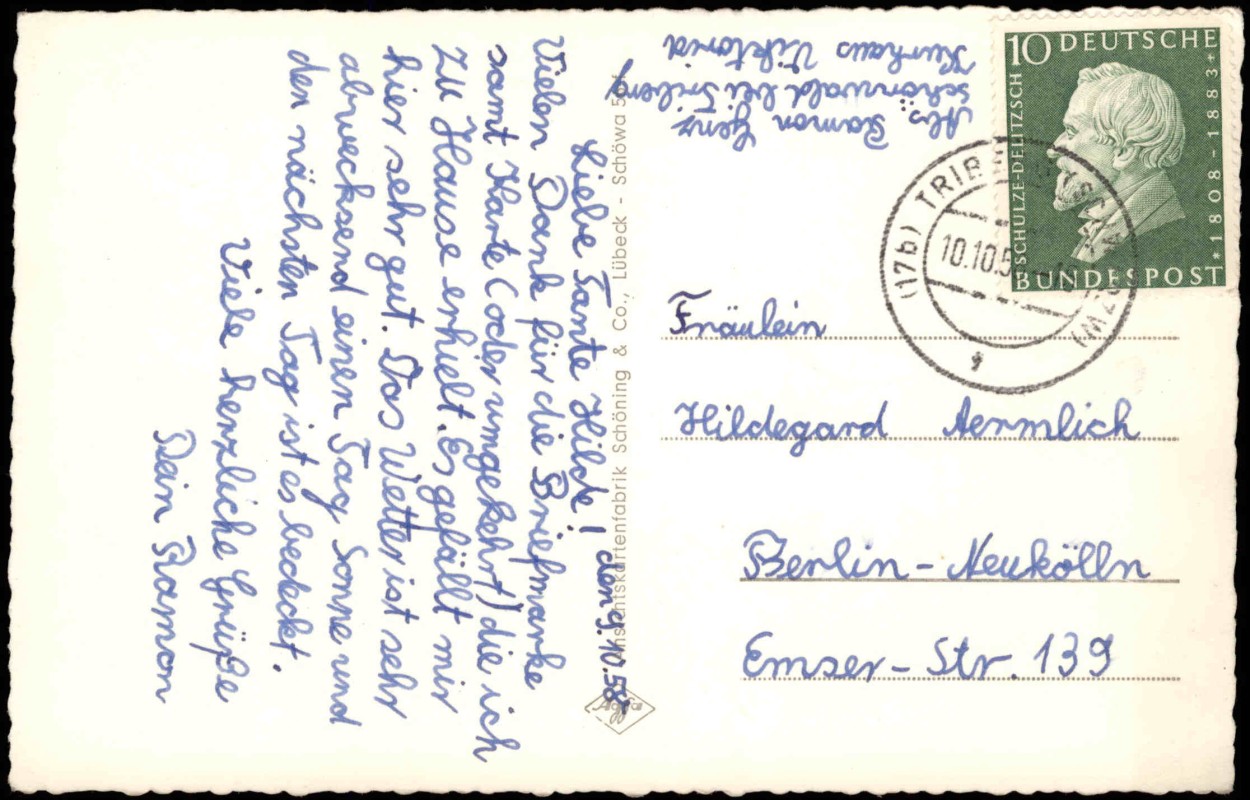 den 9.10.58
Liebe Tante Hilde!
Vielen Dank für die Briefmarke
samt Karte (oder umgekehrt) die ich
zu Hause erhielt. Es gefällt mir
hier sehr gut. Das Wetter ist sehr
abwecksend einen Tag Sonne und
den nächsten Tag ist es bedeckt.
Viele herzliche Grüße
Dein Ramon
Ansichtskartenfabrik Schöning & Co., Lübeck - Schöwa
Abs.: Ramon Genz
Schönwald bei Triberg
Kurhaus Viktoria
10 DEUTSCHE
H. SCHULZE-DELITZSCH
* 1808 - 1883 +
BUNDESPOST
(17b) TRIBERG
10.10.5
Fräulein
Hildegard Aermlich
Berlin-Neukölln
Emser-Str. 139